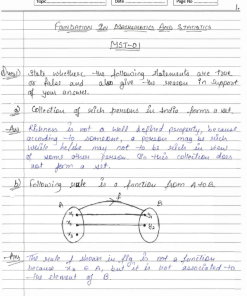 Topic
Date
Page No.
1.
FOUNDATION IN MATHEMATICS AND STATISTICS
MST-01
State whether the following statements are true
or false and also give the reason in support
of your answer.
a) Collection of rich persons in India forms a set.
Ans Richness is not a well defined property, because
according to someone, a person may be rich
while he/she may not to be rich in view
of some other person. So this collection does
not form a set.
b) Following rule is a function from A to B.
A f B
Ans The rule f shown in fig is not a function
because x3 ∈ A, but it is not associated to
the element of B.